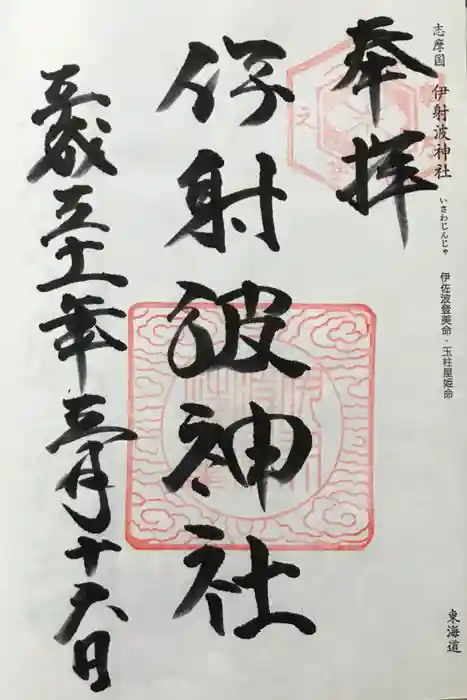 志摩国 伊射波神社 いさわじんじゃ 伊佐波登美命・玉柱屋姫命
東海道
奉拝
伊射波神社
平成三十一年三月十六日